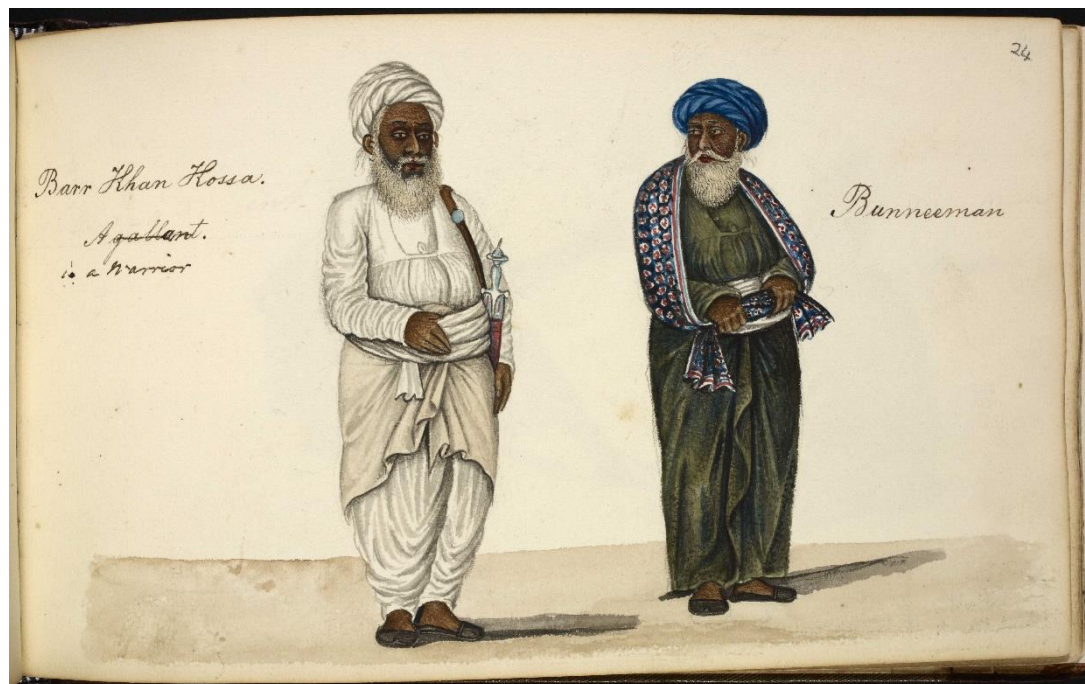 24
Barr Khan Hossa.
A gallant.
is a Warrior
Bunneeman